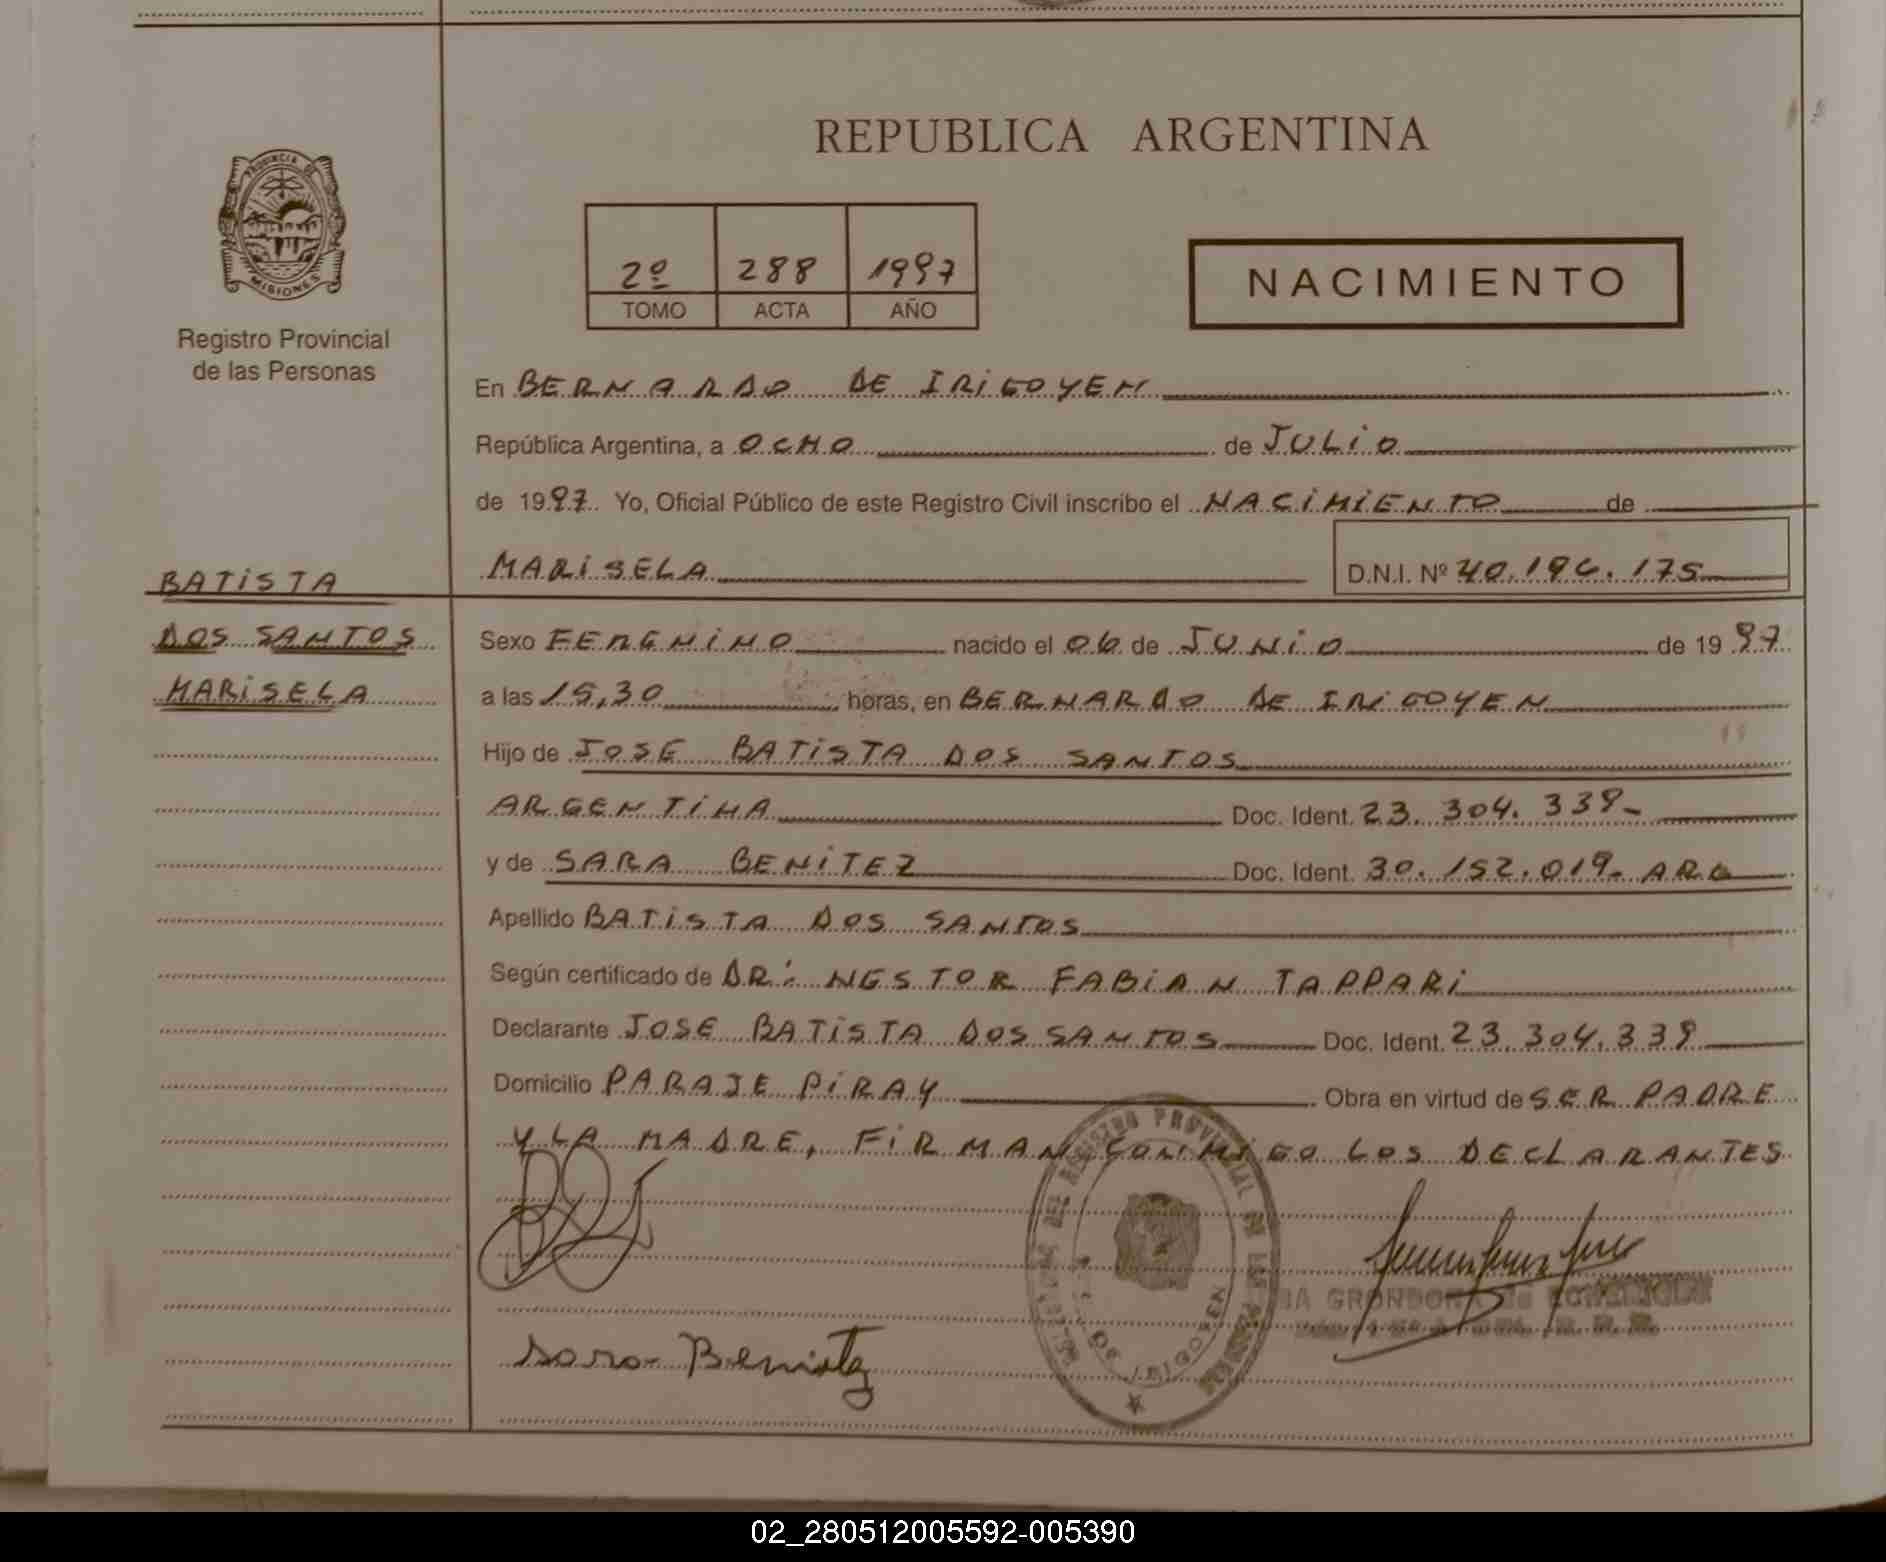 REPUBLICA ARGENTINA
PROVINCIA DE MISIONES
Registro Provincial
de las Personas
2º 288 1997
TOMO ACTA AÑO
NACIMIENTO
En BERNARDO DE IRIGOYEN
República Argentina, a OCHO de JULIO
de 1997. Yo, Oficial Público de este Registro Civil inscribo el NACIMIENTO de
MARISELA D.N.I. Nº 40.196.175
BATISTA
DOS SANTOS
MARISELA
Sexo FEMENINO nacido el 06 de JUNIO de 1997
a las 15,30 horas, en BERNARDO DE IRIGOYEN
Hijo de JOSE BATISTA DOS SANTOS
ARGENTINA Doc. Ident. 23.304.339-
y de SARA BENITEZ Doc. Ident. 30.152.019- ARG
Apellido BATISTA DOS SANTOS
Según certificado de DR: NESTOR FABIAN TAPPARI
Declarante JOSE BATISTA DOS SANTOS Doc. Ident. 23.304.339
Domicilio PARAJE PIRAY Obra en virtud de SER PADRE
Y LA MADRE, FIRMAN CONMIGO LOS DECLARANTES
DEL REGISTRO PROVINCIAL DE LAS PERSONAS
DE IRIGOYEN
GRONDONA de
Sara Benitez
02_280512005592-005390